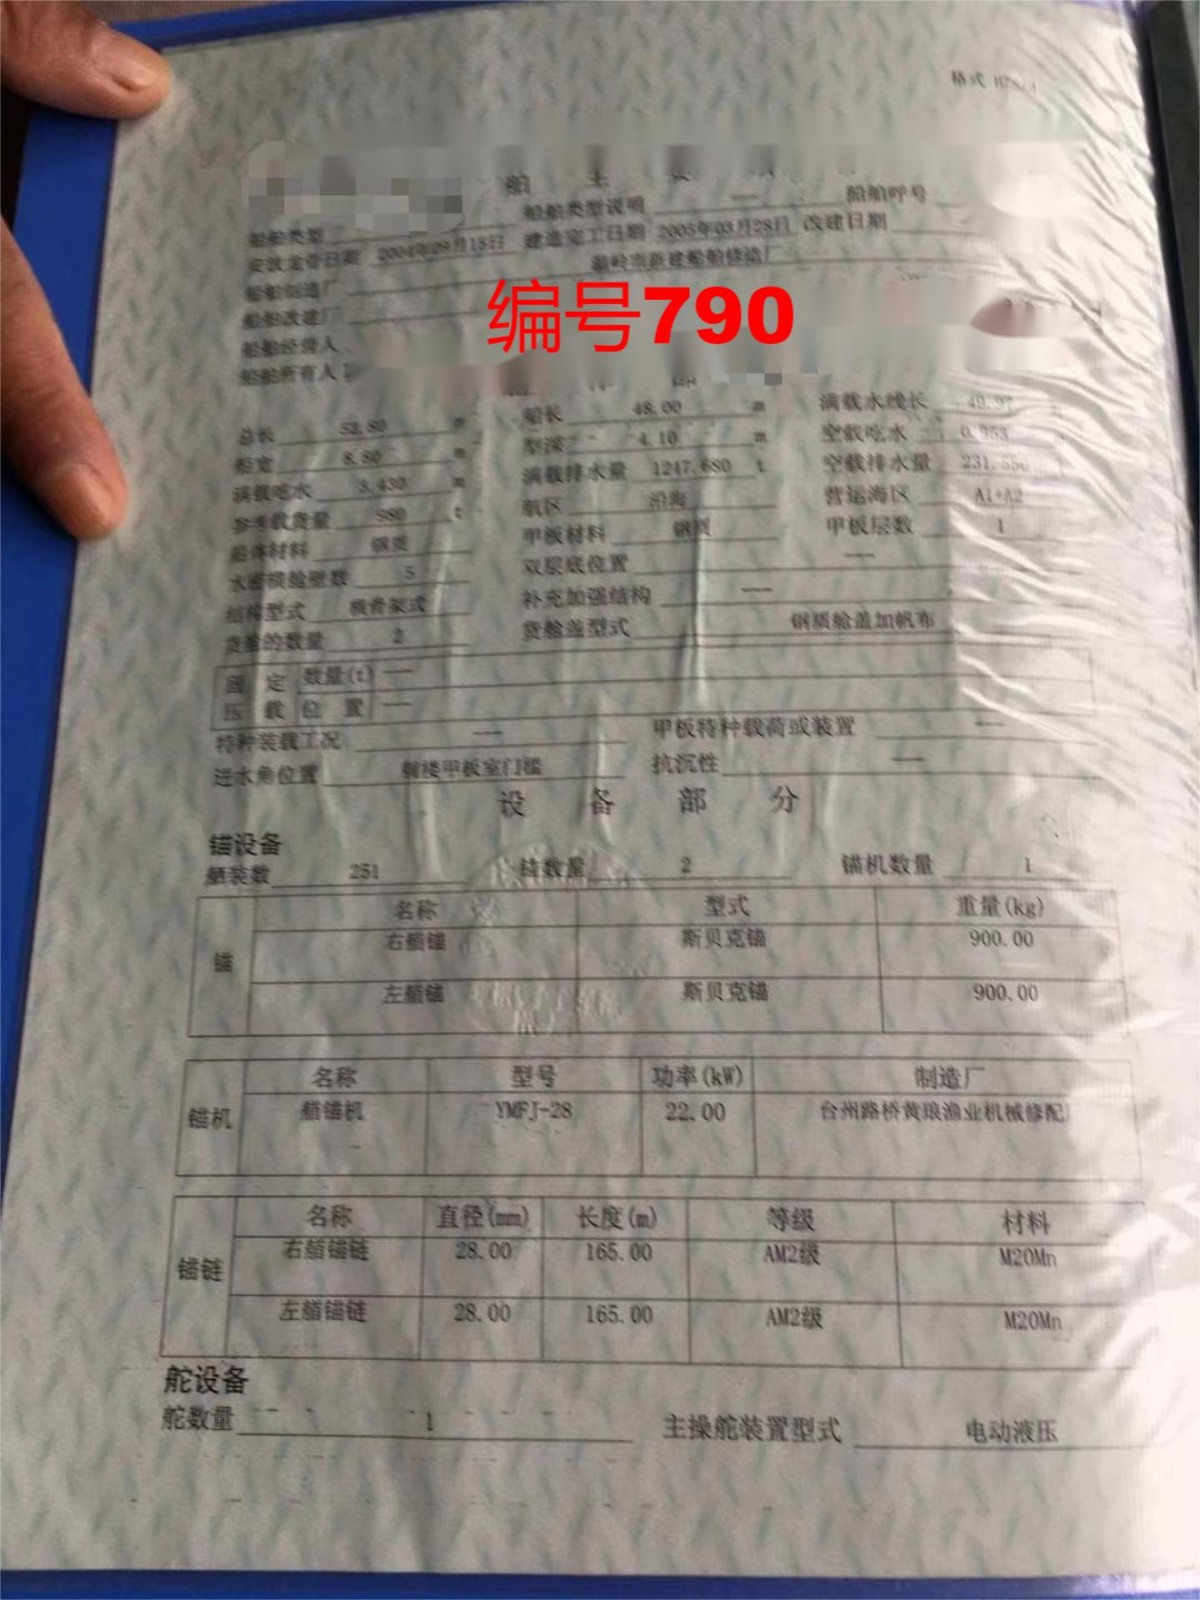 格式
船舶类型说明 — 船舶呼号
船舶类型
安放龙骨日期 2004年09月15日 建造完工日期 2005年03月28日 改建日期
船舶制造厂 温岭市新建船舶修造厂
船舶改建厂
编号790
船舶经营人
船舶所有人
总长 52.80 m 船长 48.00 m 满载水线长 49.97
船宽 8.80 m 型深 4.10 m 空载吃水 0.953
满载吃水 3.430 m 满载排水量 1247.680 t 空载排水量 231.550
参考载货量 980 t 航区 沿海 营运海区 A1+A2
船体材料 钢质 甲板材料 钢质 甲板层数 1
水密横舱壁数 5 双层底位置 —
结构型式 横骨架式 补充加强结构 —
货舱的数量 2 货舱盖型式 钢质舱盖加帆布
固定 数量(t) —
压载 位置 —
特种装载工况 — 甲板特种载荷或装置 —
进水角位置 艉楼甲板室门槛 抗沉性 —
设备部分
锚设备
舾装数 251 链数量 2 锚机数量 1
名称 型式 重量(kg)
右艏锚 斯贝克锚 900.00
锚
左艏锚 斯贝克锚 900.00
名称 型号 功率(kW) 制造厂
锚机 艏锚机 YMFJ-28 22.00 台州路桥黄琅渔业机械修配
名称 直径(mm) 长度(m) 等级 材料
右艏锚链 28.00 165.00 AM2级 M20Mn
锚链
左艏锚链 28.00 165.00 AM2级 M20Mn
舵设备
舵数量 1 主操舵装置型式 电动液压